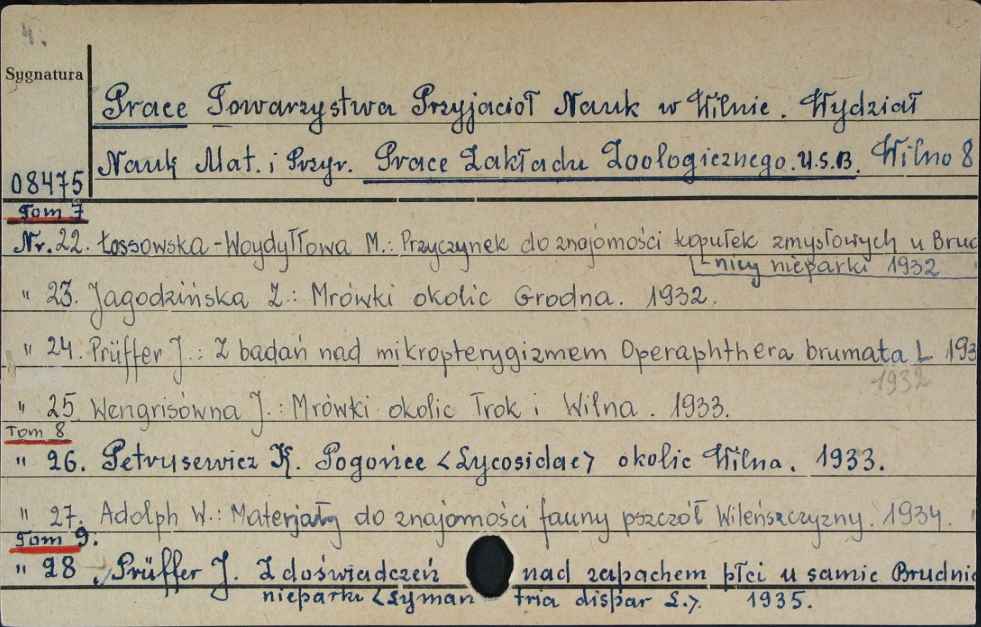 4.
Sygnatura
Prace Towarzystwa Przyjaciół Nauk w Wilnie. Wydział
Nauk Mat. i Przyr. Prace Zakładu Zoologicznego. U.S.B. Wilno 8
08475
Tom 7
Nr. 22. Łossowska-Woydyłłowa M.: Przyczynek do znajomości kopułek zmysłowych u Brud
nicy nieparki 1932
" 23. Jagodzińska Z.: Mrówki okolic Grodna. 1932.
" 24. Prüffer J.: Z badań nad mikropterygizmem Operaphthera brumata L 193
1932
" 25 Wengrisówna J.: Mrówki okolic Trok i Wilna. 1933.
Tom 8
" 26. Petrusewicz K. Pogońce <Lycosidae> okolic Wilna. 1933.
" 27. Adolph W.: Materjały do znajomości fauny pszczół Wileńszczyzny. 1934.
Tom 9.
" 28 Prüffer J. Z doświadczeń nad zapachem płci u samic Brudnic
nieparki <Lymantria dispar L.>. 1935.